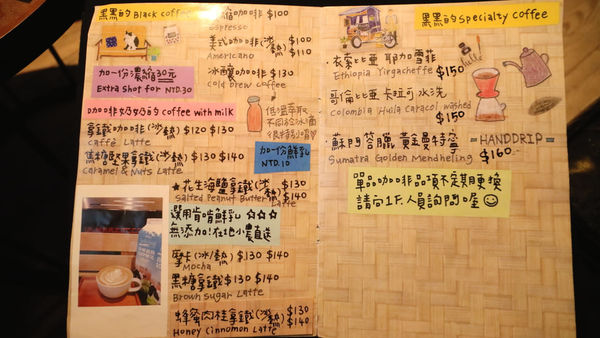 黑黑的Black coffee
咖啡 $100
Espresso
美式咖啡(冰/熱) $100
$110
Americano
冰釀咖啡 $130
Cold brew coffee
加一份濃縮30元
Extra shot for NTD.30
咖啡奶奶的coffee with milk
低溫萃取
不同於冰滴
很特別唷
拿鐵咖啡(冰/熱) $120 $130
Caffè Latte
焦糖堅果拿鐵(冰/熱) $130 $140
Caramel & Nuts Latte
加一份鮮乳
NTD.10
★花生海鹽拿鐵(冰/熱) $130
$140
Salted Peanut Butter Latte
選用 鮮乳☆☆☆
無添加!在地小農直送
摩卡(冰/熱) $130 $140
Mocha
黑糖拿鐵 $130 $140
Brown Sugar Latte
蜂蜜肉桂拿鐵(冰/熱) $130
$140
Honey Cinnamon Latte
黑黑的Specialty coffee
衣索比亞 耶加雪菲
Ethiopia Yirgacheffe $150
哥倫比亞卡拉可 水洗
Colombia Huila Caracol washed
$150
蘇門答臘 黃金曼特寧
Sumatra Golden Mendheling $160
HANDDRIP
單品咖啡品項不定期更換
請向1F.人員詢問喔